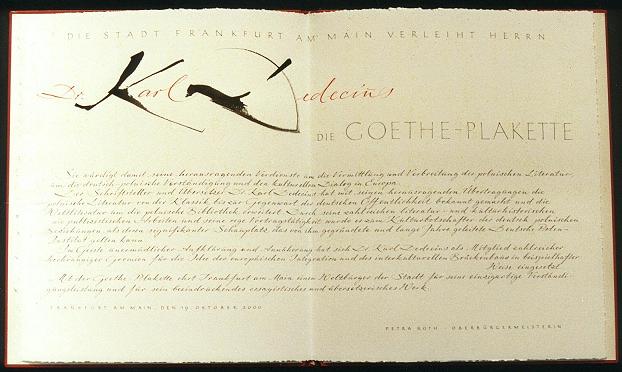 DIE STADT FRANKFURT AM MAIN VERLEIHT HERRN
Dr. Karl Dedecius
DIE GOETHE-PLAKETTE
Sie würdigt damit seine herausragenden Verdienste um die Vermittlung und Verbreitung der polnischen Literatur,
um die deutsch-polnische Verständigung und den kulturellen Dialog in Europa.
Der Schriftsteller und Übersetzer Dr. Karl Dedecius hat mit seinen herausragenden Übertragungen die
polnische Literatur von der Klassik bis zur Gegenwart der deutschen Öffentlichkeit bekannt gemacht und die
Weltliteratur um die polnische Bibliothek erweitert. Durch seine zahlreichen literatur- und kulturhistorischen
wie publizistischen Arbeiten und seine rege Vortragstätigkeit wurde er zum Kulturbotschafter der deutsch-polnischen
Beziehungen, als deren signifikanter Schauplatz das von ihm gegründete und lange Jahre geleitete Deutsche Polen-
Institut gelten kann.
Im Geiste unermüdlicher Aufklärung und Annäherung hat sich Dr. Karl Dedecius als Mitglied zahlreicher
hochrangiger Gremien für die Idee der europäischen Integration und des interkulturellen Brückenbaus in beispielhafter
Weise eingesetzt.
Mit der Goethe-Plakette ehrt Frankfurt am Main einen Weltbürger der Stadt für seine einzigartige Verständi-
gungsleistung und für sein beeindruckendes essayistisches und übersetzerisches Werk.
FRANKFURT AM MAIN, DEN 19. OKTOBER 2000
PETRA ROTH - OBERBÜRGERMEISTERIN